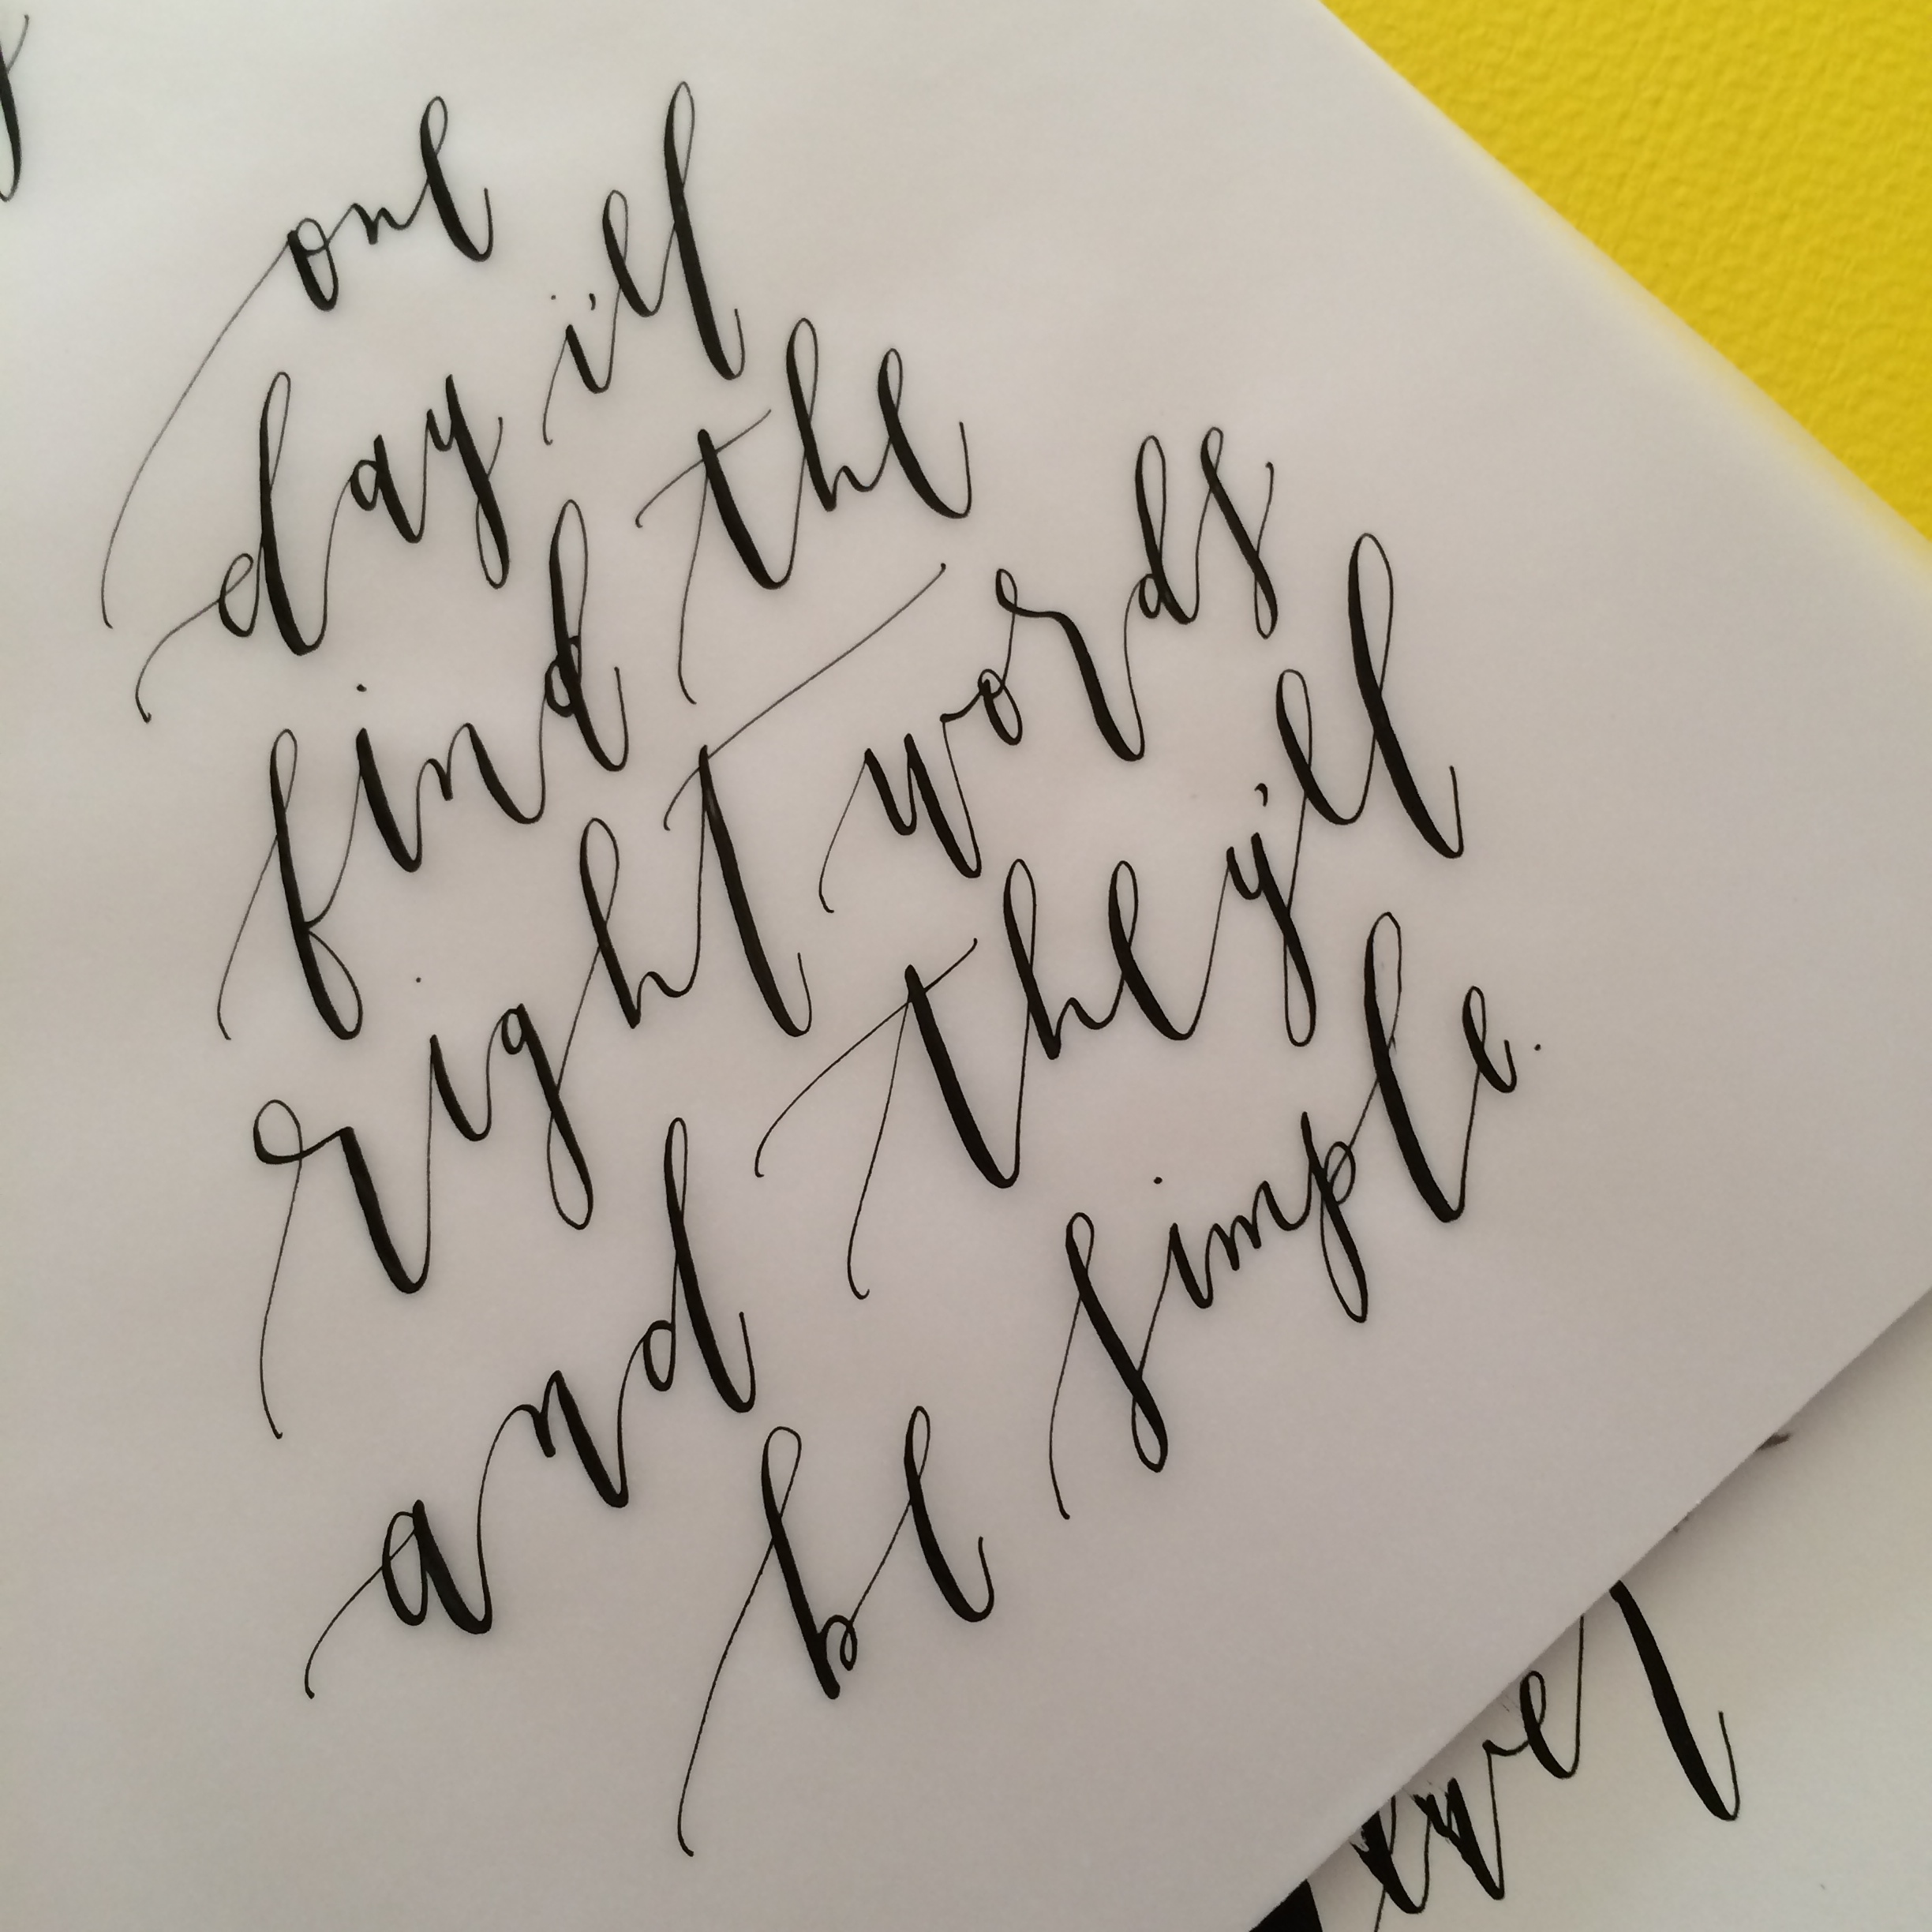 one
day i'll
find the
right words
and they'll
be simple.